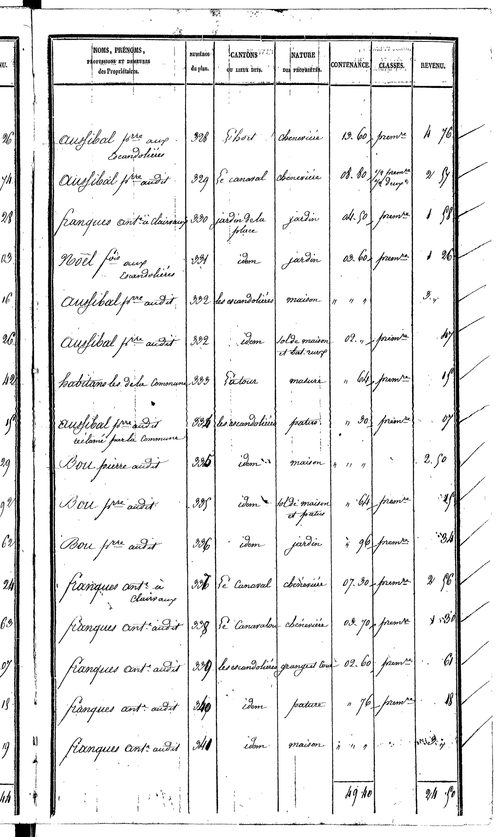 NOMS, PRÉNOMS, PROFESSIONS ET DEMEURES des Propriétaires. NUMÉROS du plan. CANTONS OU LIEUX DITS. NATURE DES PROPRIÉTÉS. CONTENANCE. CLASSES. REVENU.
aussibal pre aux Escandolières 328 L'hort chenevière 13. 60 premre 4 76
aussibal pre audit 329 Le canaval chenevière 08. 80 1/2 premre 1/2 deuxe 2 57
franques ante à Clairvaux 330 jardin de la place jardin 04. 50 premre 1 58
Noël fois aux Escandolières 331 idem jardin 03. 60 premre 1 26
aussibal pre audit 332 les escandolières maison " " " 3. "
aussibal pre audit 332 idem sol de maison et bat. rural 02. " premre 47
habitans les de la Commune 333 masure " 64 premre 15
aussibal pre audit réclamé par la Commune 334 les escandolières patus " 30 premre 07
Bou pierre audit 335 idem maison " " " 2. 50
Bou pre audit 335 idem sol de maison et patus " 64 premre
Bou pre audit 336 idem jardin " 96 premre 34
franques ante à Clairvaux 337 Le Canaval chenevière 07. 30 premre 2 56
franques ante audit 338 Le Canavalou chenevière 03. 70 premre 1 30
franques ante audit 339 les escandolières grange et cour 02. 60 premre 61
franques ante audit 340 idem pature " 76 premre 18
franques ante audit 341 idem maison " " "
49 40 24 50